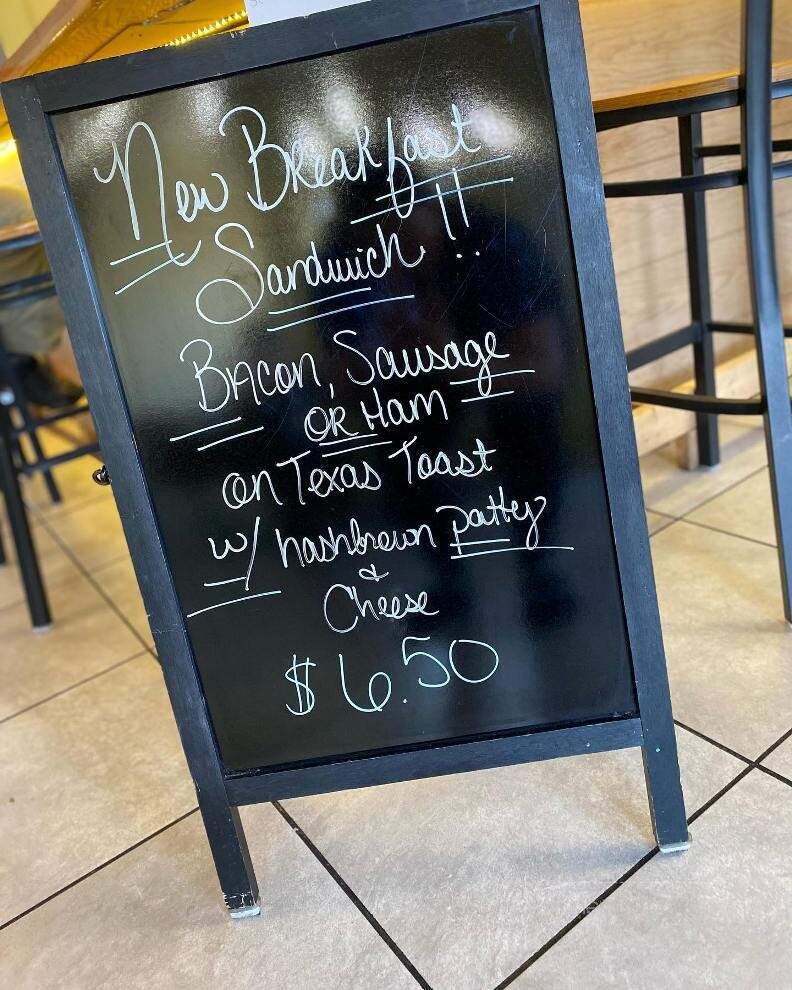 New Breakfast
Sandwich!!
Bacon, Sausage
OR Ham
on Texas Toast
w/ hashbrown patty
&
Cheese
$6.50